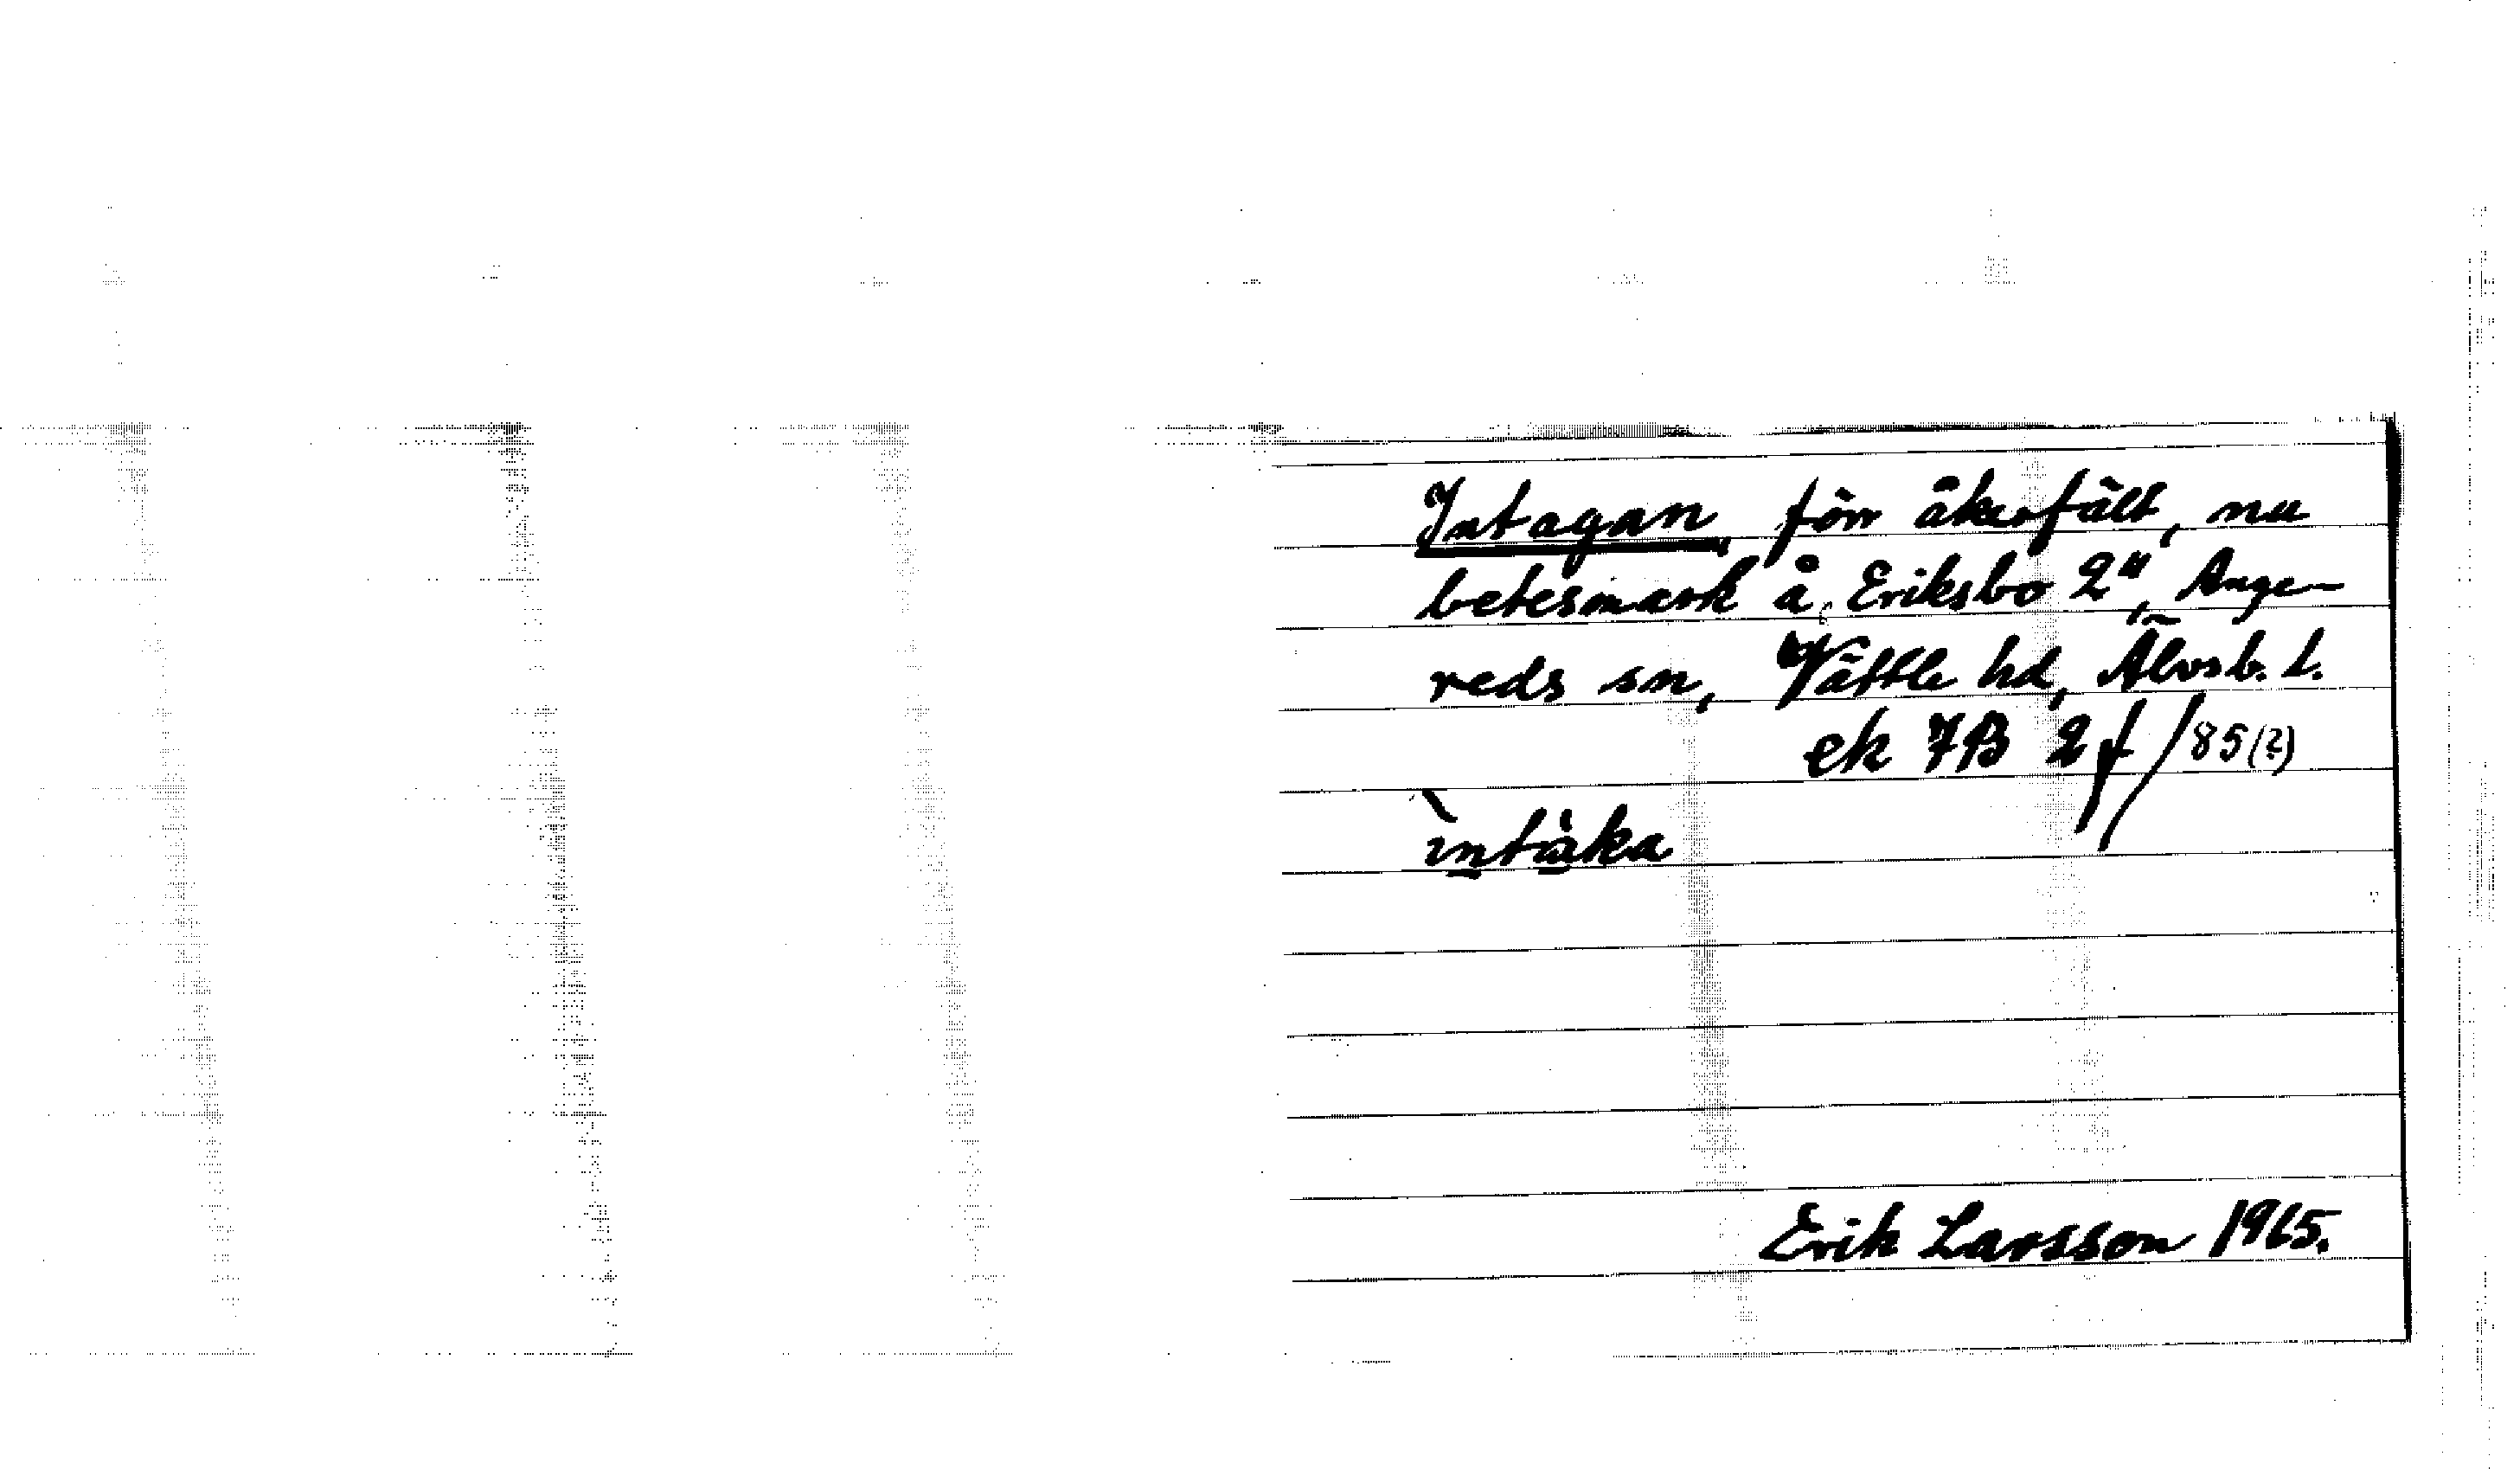 Intagan förr åkerfält, nu
betesmark å Eriksbo 2", Ange-
reds sn, Vättle hd, Älvsb. l.
ek 7B 2f/85(?)
intåka
Erik Larsson 1965.